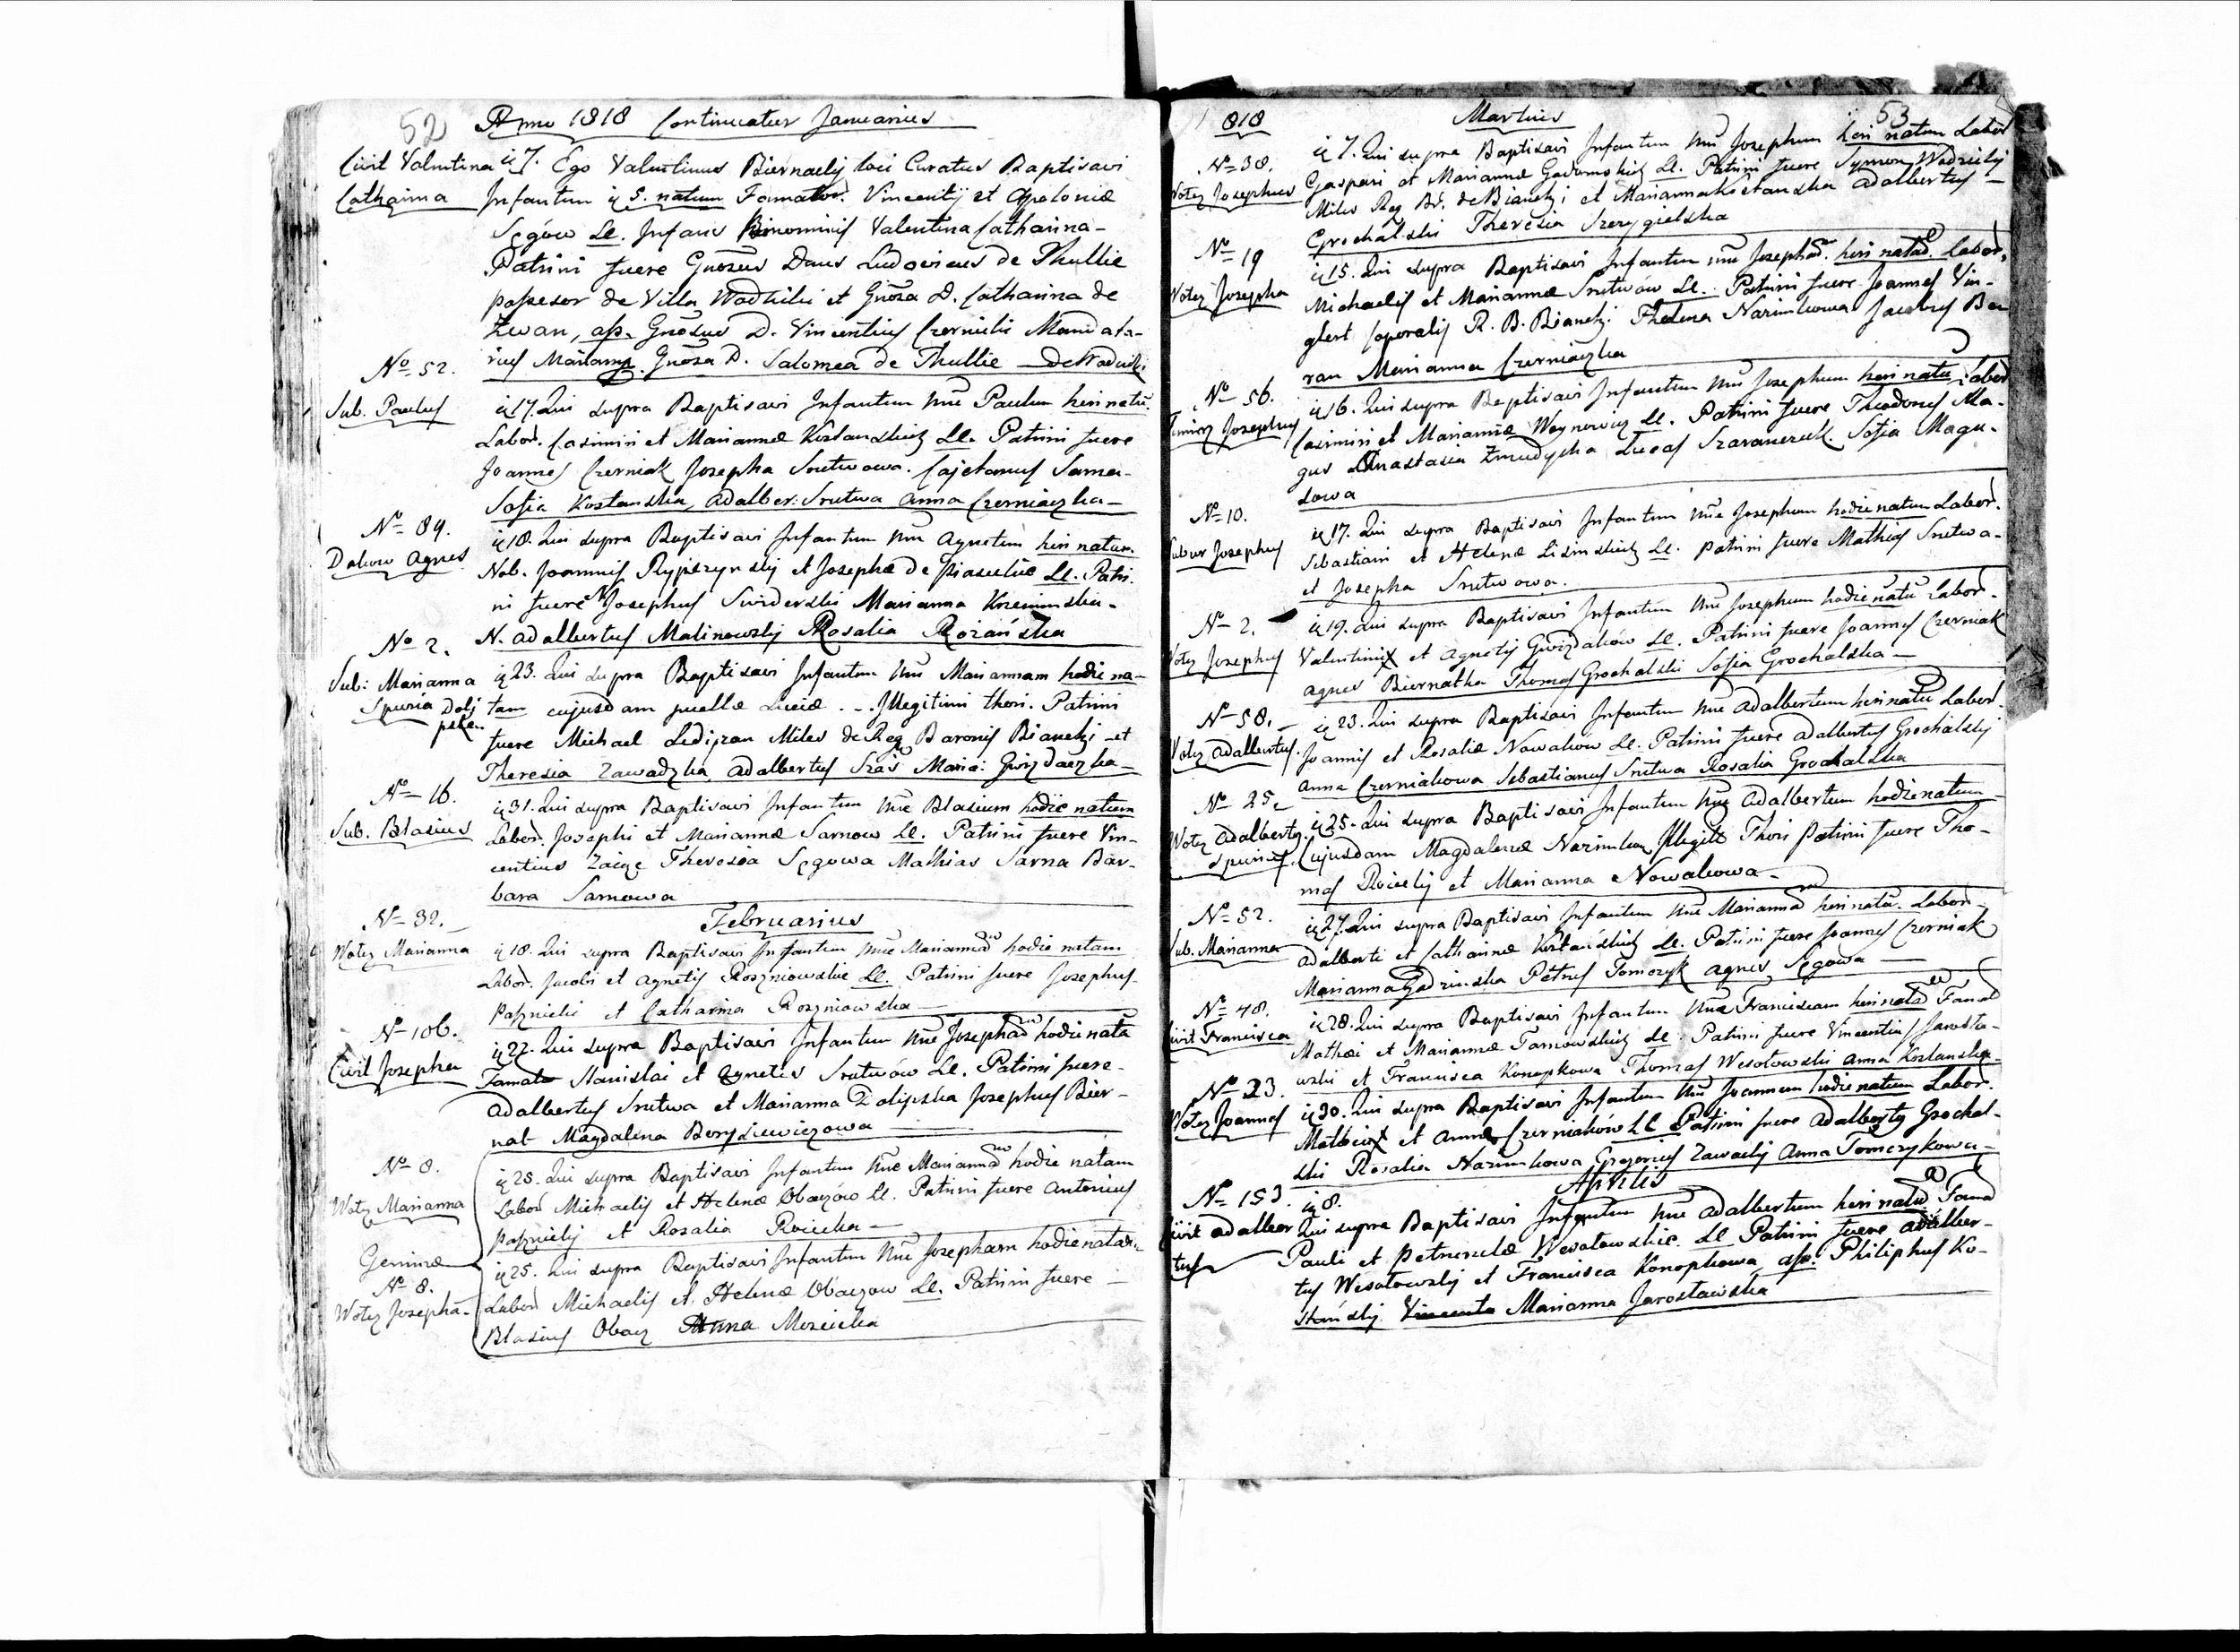 52
Anno 1818 Continuatur Januarius
Civit Valentina
Catharina
ią 7. Ego Valentinus Biernacky loci Curatus Baptisavi
Infantem ią 5. natum Famator. Vincentij et Apoloniæ
Sęgów LC. Infans Binominis Valentina Catharina
Patrini fuere Gnosus Dnus Ludovicus de Thullie
possesor de Villa Wodzicki et Gnosa D. Catharina de
Zwan, ass. Gnosus D. Vincentius Czernicki Mandata-
rius Gnosa D. Salomea de Thullie
No 52.
Sub. Paulus
ią 17. Qui supra Baptisavi Infantem nne Paulum heri natū
Labor. Casimiri et Mariannæ Kostanskich LC. Patrini fuere
Joannes Czerniak Josepha Srutwowa. Cajetanus Sarna
Sofia Kostanska, Adalber: Srutwa Anna Czerniaczka
No 89.
Dolow Agnes
ią 18. Qui supra Baptisavi Infantem nne Agnetem heri natam
Nob. Joannis et Josephæ de Piaseckie LC. Patri-
ni fuere N Josephus Swiderski Marianna
N. Adalbertus Malinowsky Rosalia Rożańska
No 2.
Sub: Marianna
Spuria
ią 23. Qui supra Baptisavi Infantem nne Mariannam hodie na-
tam cujusdam puellæ Luciæ . -. Illegitimi thori. Patrini
fuere Michael Miles de Reg Baronis Bianchi et
Theresia Zawadzka Adalbertus Maria: Gwizdaczka
No 16.
Sub. Blasius
ią 31. Qui supra Baptisavi Infantem nne Blasium hodie natum
Labor. Josephi et Mariannæ Sarnow LC. Patrini fuere Vin-
centius Zaięc Theresia Sęgowa Mathias Sarna Bar-
bara Sarnowa
Februarius
No 32.
Wotez Marianna
ią 18. Qui supra Baptisavi Infantem nne Mariannā hodie natam
Labor. Jacobi et Agnetis Rozniowskie LC. Patrini fuere Josephus
Paznicki et Catharina Rozniowska
No 106.
Civit Josepha
ią 22. Qui supra Baptisavi Infantem nne Josephā hodie natā
Famat Stanislai et Agnetis Srutwów LC. Patrini fuere
Adalbertus Srutwa et Marianna Dolipska Josephus Bier-
nat Magdalena Borysiewiczowa
No 8.
Wotez Marianna
ią 25. Qui supra Baptisavi Infantem nne Mariannā hodie natam
Labor Michaelis et Helenæ Obaczów LC. Patrini fuere Antonius
Paznicky et Rosalia Roicka
Geminæ
No 8.
Wotez Josepha
ią 25. Qui supra Baptisavi Infantem nne Josepham hodie natam
Labor Michaelis et Helenæ Obaczow LC. Patrini fuere
Blasius Obacz Anna Mosicka
53
1818
Martius
No 38.
Wotez Josephus
ią 7. Qui supra Baptisavi Infantem nne Josephum heri natum Labor
Gaspari et Mariannæ LC. Patrini fuere Symon Wodzicky
Miles Reg Br. de Bianchi; et Marianna Kostanska Adalbertus
Grochalski Theresia
No 19
Wotez Josepha
ią 15. Qui supra Baptisavi Infantem nne Josephā heri natā Labor.
Michaelis et Mariannæ Srutwow LC. Patrini fuere Joannes Vin-
glert Caporalis R. B. Bianchi. Helena Nazimkowa Jacobus Ba
ran Marianna Czerniaczka
No 56.
Josephus
ią 16. Qui supra Baptisavi Infantem nne Josephum heri natū Labor
Casimiri et Mariannæ Woynowicz LC. Patrini fuere Theodorus Ma-
gus Anastasia Zmudycka Lucas Szaraneruk Sofia Magu-
sowa
No 10.
Subur Josephus
ią 17. Qui supra Baptisavi Infantem nne Josephum hodie natum Labor.
Sebastiani et Helenæ Lisinskich LC. Patrini fuere Mathias Srutwa
et Josepha Srutwowa.
No 2.
Wotez Josephus
ią 19. Qui supra Baptisavi Infantem nne Josephum hodie natū Labor.
Valentini et Agnetis Gwizdaków LC. Patrini fuere Joannes Czerniak
Agnes Biernatka Thomas Grochalski Sofia Grochalska
No 58.
Wotez Adalbertus
ią 23. Qui supra Baptisavi Infantem nne Adalbertum heri natū Labor.
Joannis et Rosaliæ Nowakow LC. Patrini fuere Adalbertus Grochalsky
Anna Czerniakowa Sebastianus Srutwa Rosalia Grochalska
No 25.
Wotez Adalbertus
Spurius
ią 25. Qui supra Baptisavi Infantem nne Adalbertum hodie natum
Cujusdam Magdalenæ Illegit Thori Patrini fuere Tho-
mas Roicky et Marianna Nowakowa
No 52.
Sub. Marianna
ią 27. Qui supra Baptisavi Infantem nne Mariannā heri natā. Labor.
Adalberti et Catharinæ Kostańskich LC. Patrini fuere Joannes Czerniak
Marianna Petrus Tomczyk Agnes Sęgowa
No 48.
Civit Francisca
ią 28. Qui supra Baptisavi Infantem nne Franciscam heri natā Famat
Mathæi et Mariannæ Tarnowskich LC. Patrini fuere Vincentius Jarosła-
wski et Francisca Konopkowa Thomas Wesołowski Anna Kostanska
No 23.
Wotez Joannes
ią 30. Qui supra Baptisavi Infantem nne Joannem hodie natum Labor.
Mathiæ et Annæ Czerniaków LC Patrini fuere Adalbertus Grochal-
ski Rosalia Nazimkowa Gregorius Zawacky Anna Tomczykowa
Aprilis
No 153.
Civit Adalber
tus
ią 8.
Qui supra Baptisavi Infantem nne Adalbertum heri natū Famat
Pauli et Petronelæ Wesołowskie LC Patrini fuere Adalber-
tus Wesołowsky et Francisca Konopkowa, ass. Philiphus Ko-
stańsky Marianna Jarosławska